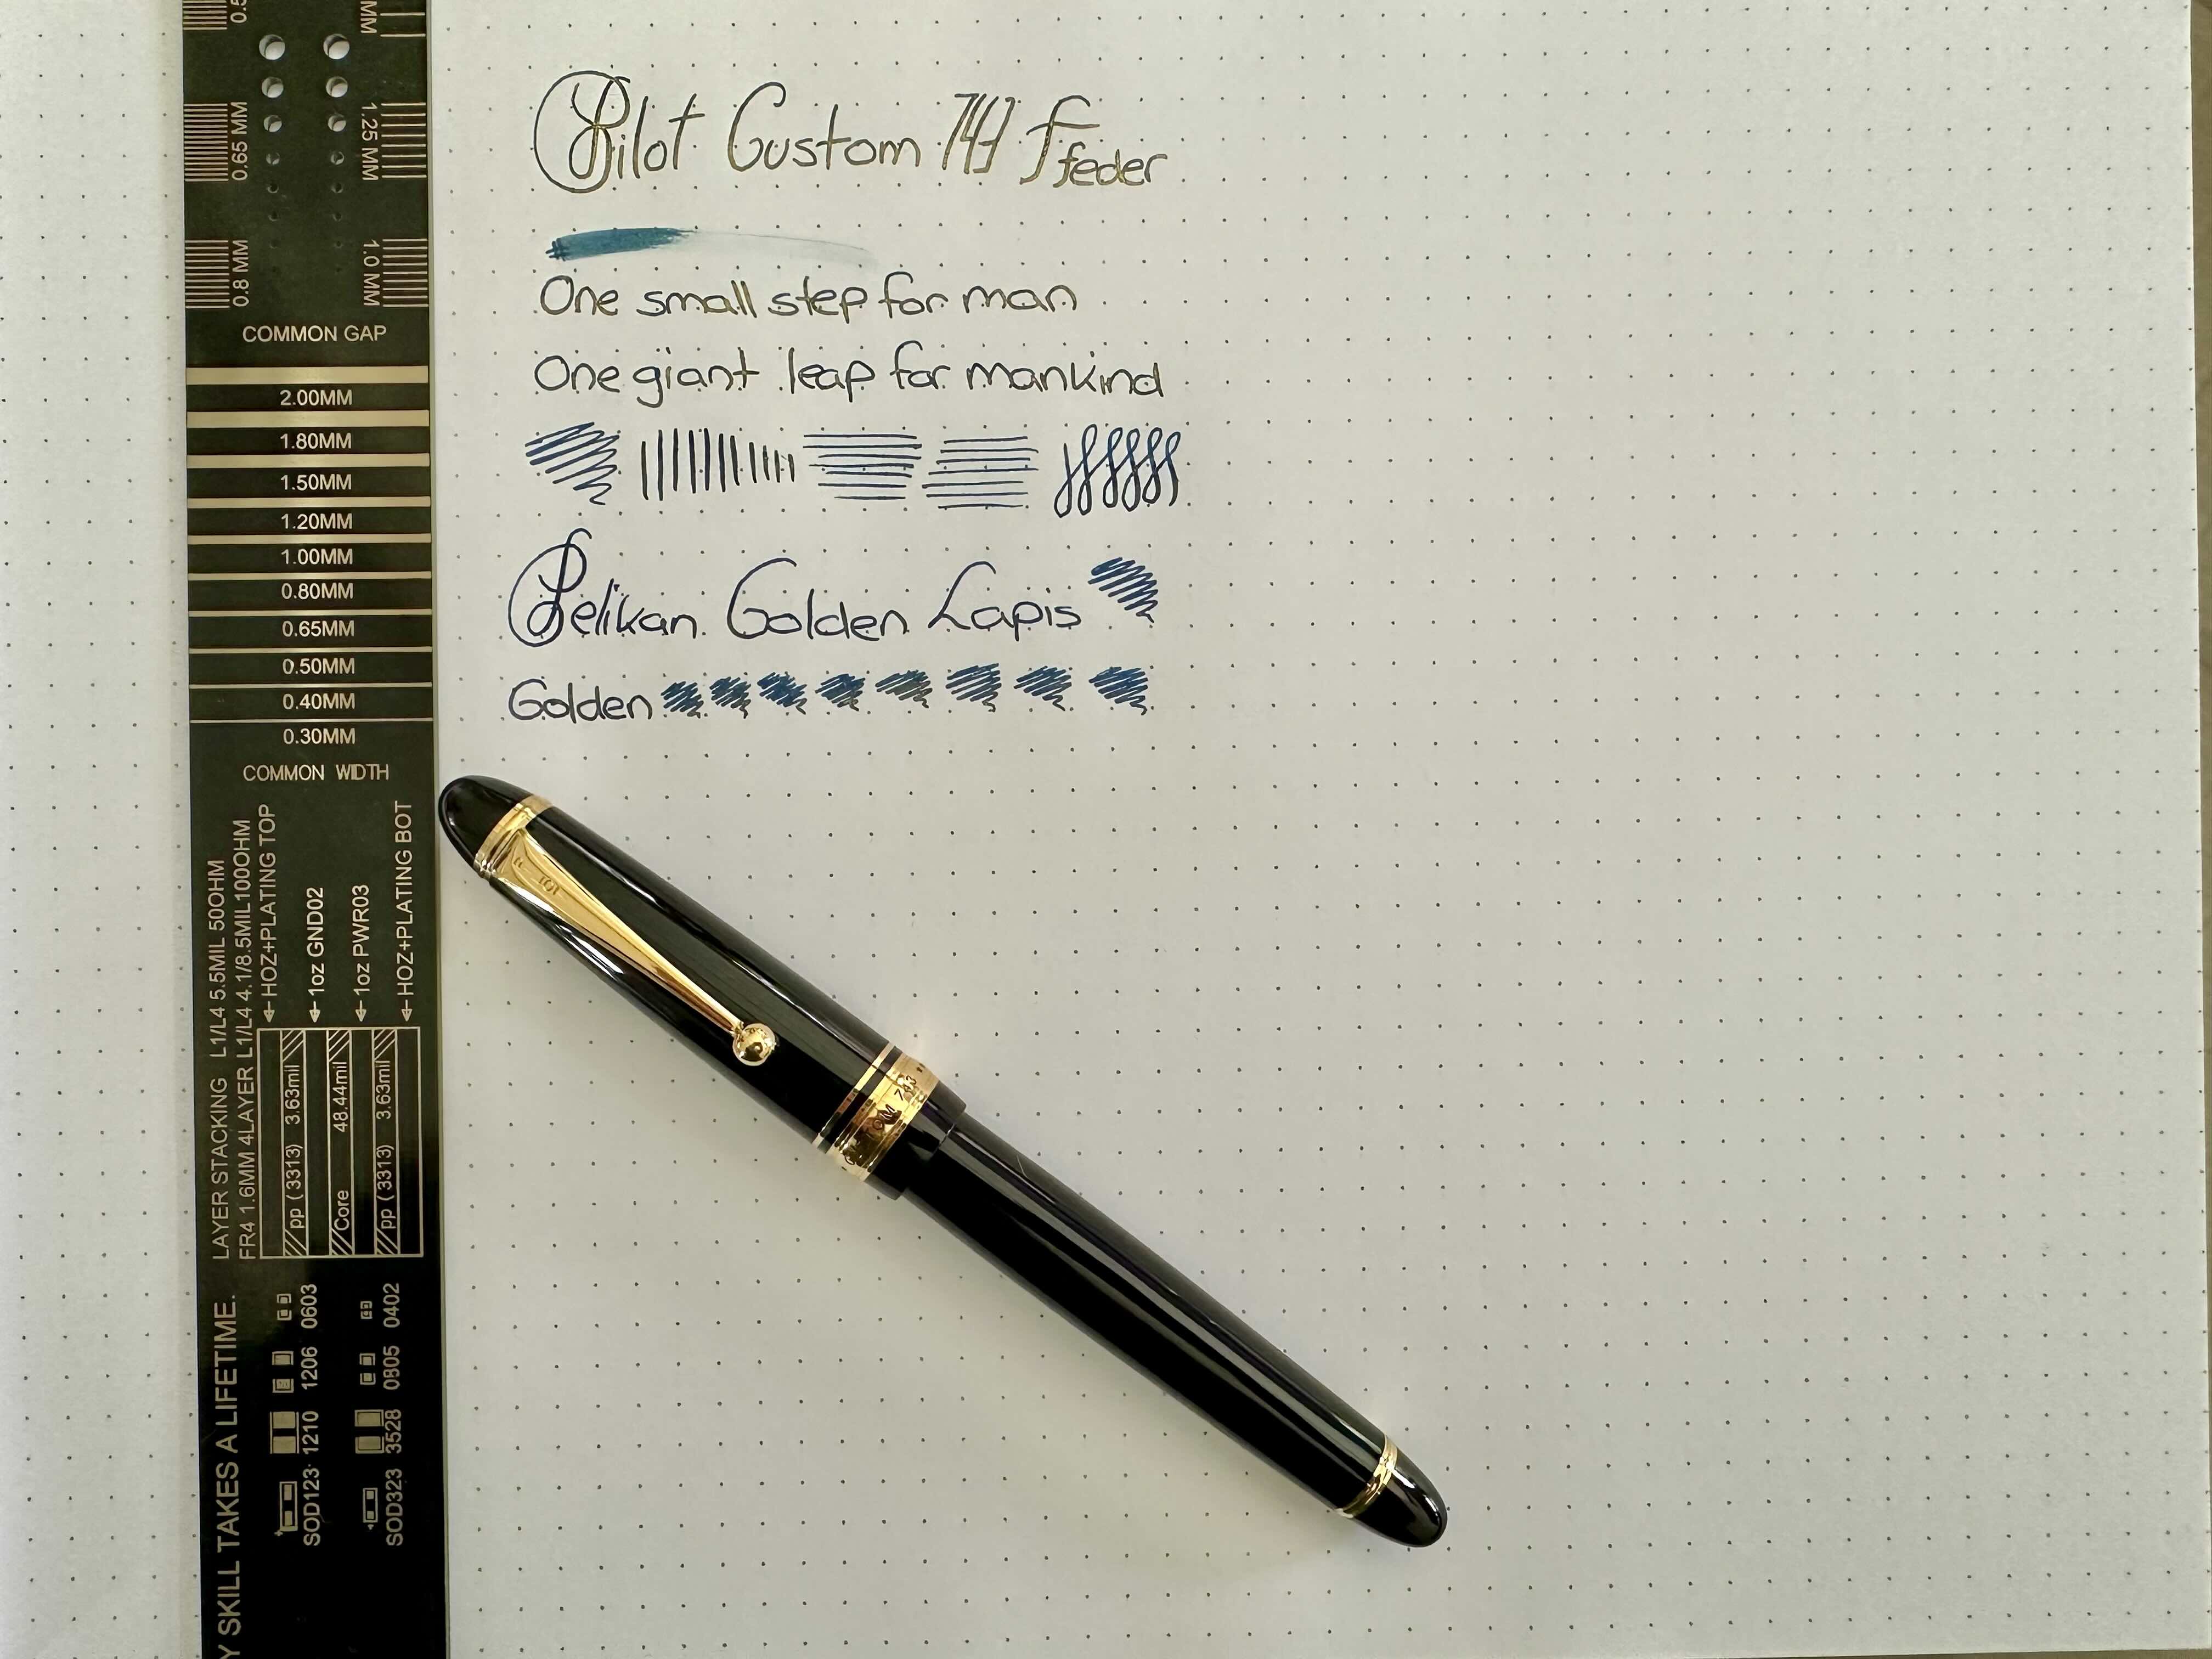 0.65 MM
1.25 MM
0.8 MM
1.0 MM
COMMON GAP
2.00MM
1.80MM
1.50MM
1.20MM
1.00MM
0.80MM
0.65MM
0.50MM
0.40MM
0.30MM
COMMON WIDTH
LAYER STACKING L1/L4 5.5MIL 50OHM
FR4 1.6MM 4LAYER L1/L4 4.1/8.5MIL100OHM
HOZ+PLATING TOP
1oz GND02
1oz PWR03
HOZ+PLATING BOT
pp (3313) 3.63mil
Core 48.44mil
pp (3313) 3.63mil
SOD123 1210 1206 0603
SOD323 3528 0805 0402
SKILL TAKES A LIFETIME.
Pilot Custom 743 F feder
One small step for man
One giant leap for mankind
Pelikan Golden Lapis
Golden
CUSTOM 743